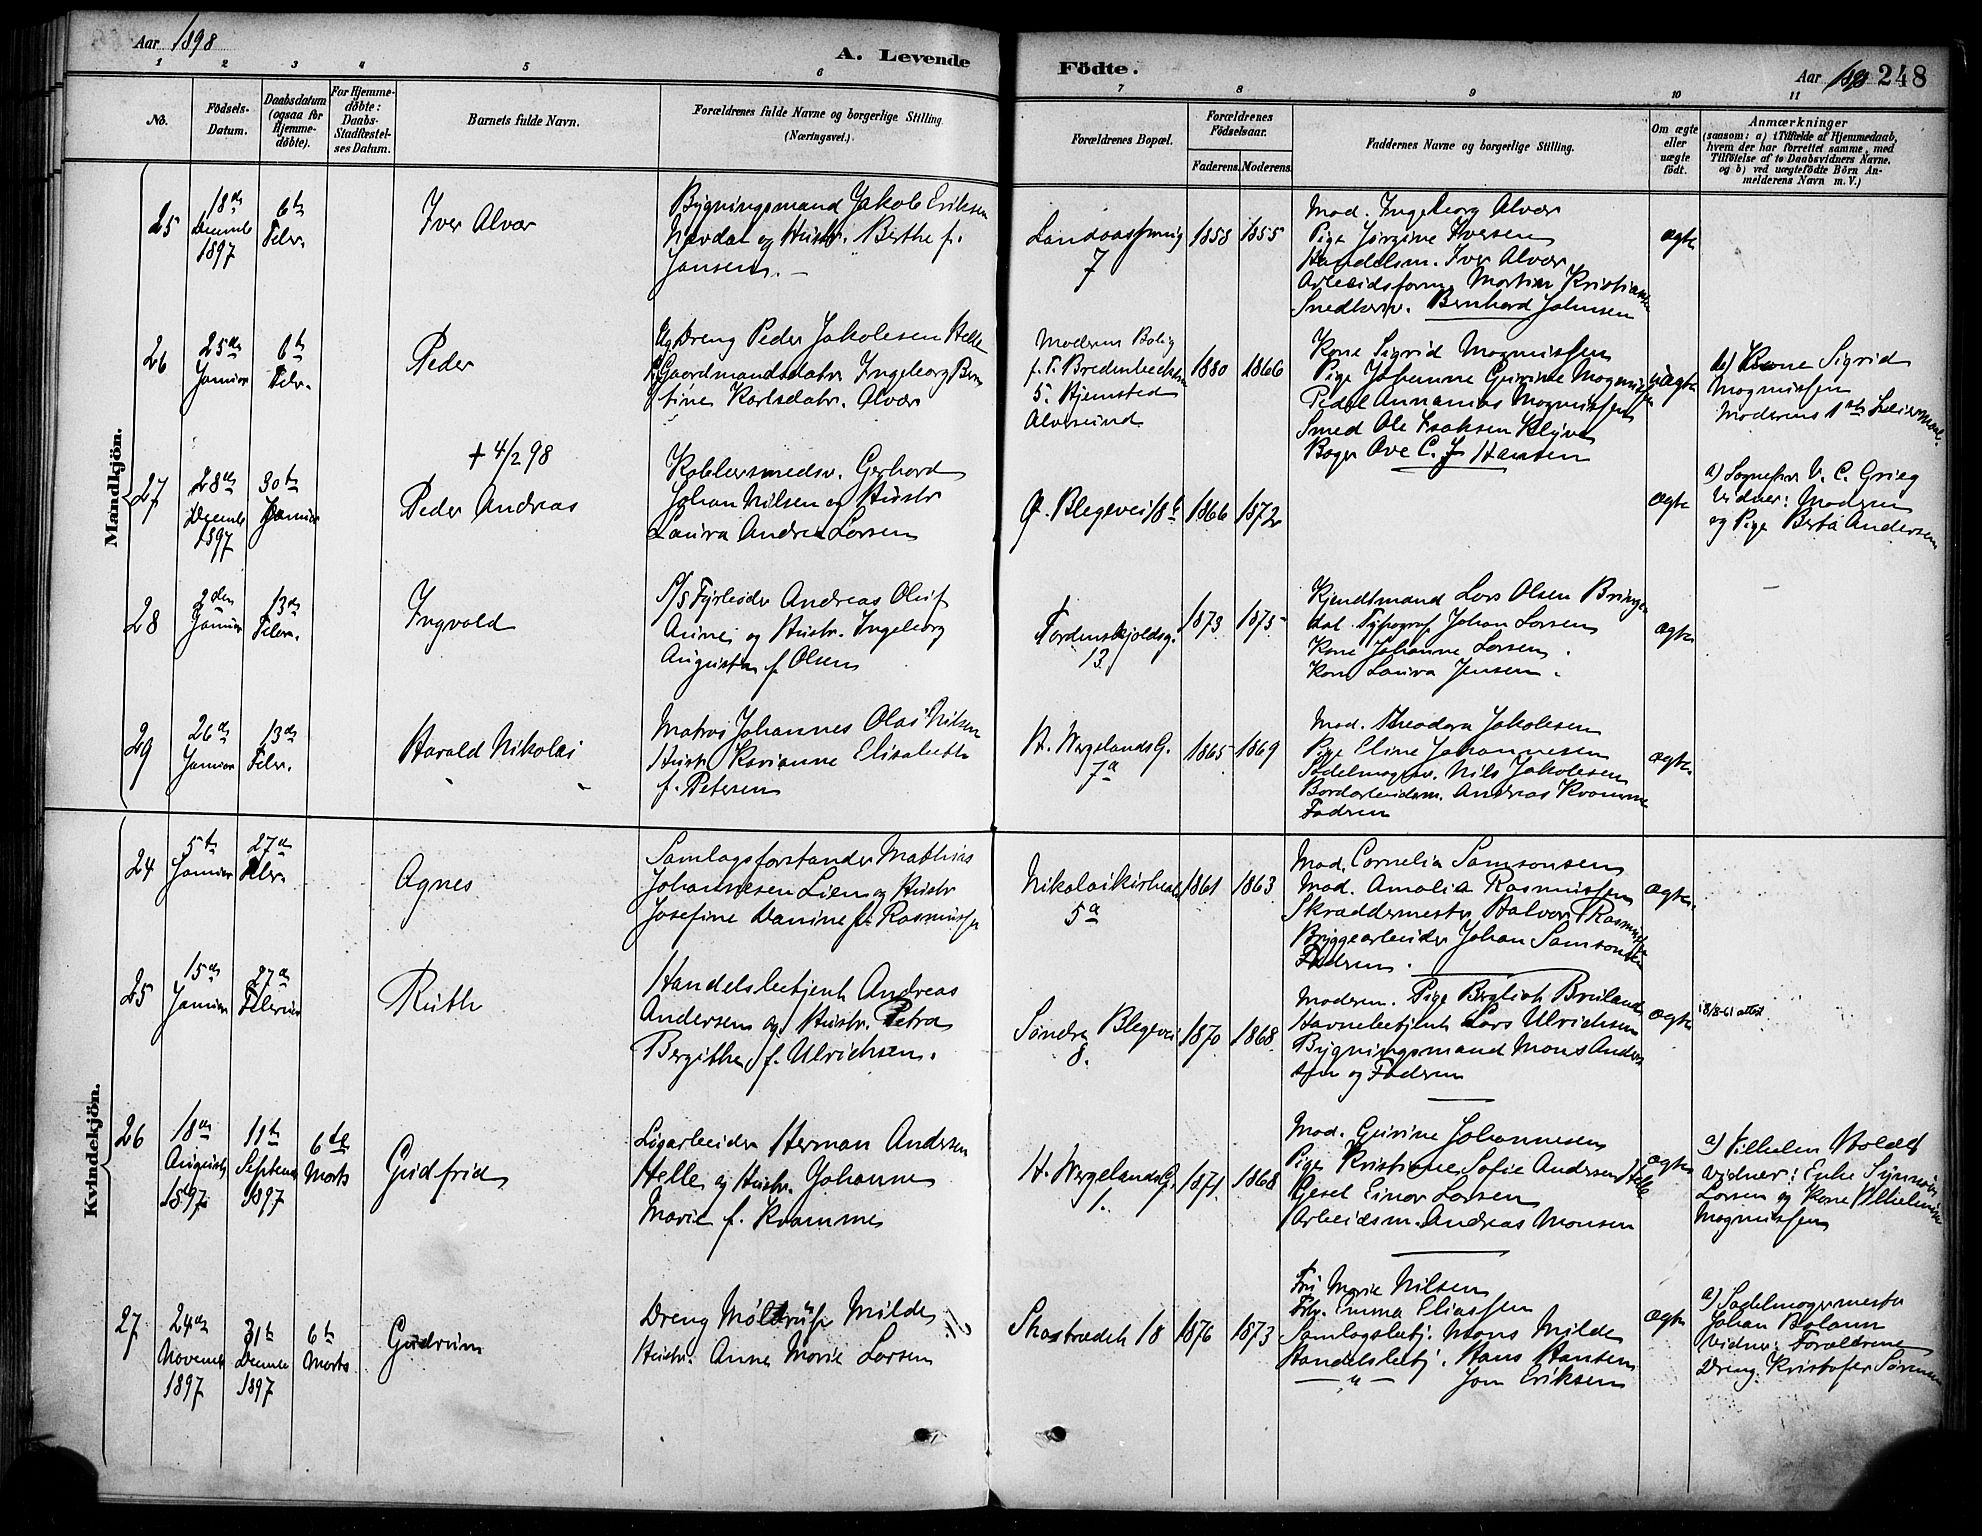 Aar 1898
A. Levende
Födte.
Aar 1898 248
1 2 3 4 5 6 7 8 9 10 11
No.
Födsels-
Datum.
Daabsdatum
(ogsaa for
Hjemme-
döbte).
For Hjemme-
döbte:
Daabs-
Stadfæstel-
ses Datum.
Barnets fulde Navn.
Forældrenes fulde Navne og borgerlige Stilling
(Næringsvei).
Forældrenes Bopæl.
Forældrenes
Födselsaar.
Faderens. Moderens.
Faddernes Navne og borgerlige Stilling.
Om ægte
eller
uægte
födt.
Anmærkninger
(saasom: a) i Tilfælde af Hjemmedaab,
hvem der har forrettet samme, med
Tilföielse af to Daabsvidners Navne.
og b) ved uægtefödte Börn An-
melderens Navn m. V.)
Mandkjön.
25
18de
Decemb
1897
6te
Febr.
Iver Alvær
Bygningsmand Jakob Eriksen
Nævdal og Hustr. Berthe f.
Jansen. –
7
1858 1855
Mad. Ingeborg Alvær
Pige Jørgine Iversen
Handelsm. Iver Alvær
Arbeidsform. Martin Kristiansen
Snedkersv. Bernhard Johnsen
ægte
26
25de
Januar
6te
Febr.
Peder
Ug. Dreng Peder Jakobsen Helle
Gaardmandsdatr. Ingeborg Bern
tine Karlsdatr. Alvær
Moderens Bolig
5. Hjemsted
Alversund
1880 1866
Kone Sigrid Magnussen
Pige Johanne Gurine Magnussen
Pedel Annanias Magnussen
Smed Ole Isaksen Klyve
Bager Ove C. J. Hansen
uægte
b) Kone Sigrid
Magnussen
Moderens 1ste Leiermaal.
27
28de
Decemb
1897
30te
Januar
+ 4/2 98
Peder Andreas
Kobbersmedsv. Gerhard
Johan Nilsen og Hustr
Laura Andrea Larsen
Blegevei 18b
1866 1872
ægte
a) Sognepr V. C. Grieg
Vidner: Moderen
og Pige Berta Andersen
28
2den
Januar
13de
Febr.
Ingvald
S/S Fyrbøder Andreas Oluf
Aune og Hustr. Ingeborg
Augusta f. Olsen
Tordenskjoldsg.
13.
1873 1875
Kjendtmand Lars Olsen Bringe
dal. Typograf Johan Larsen
Kone Johanne Larsen.
Kone Laura Jensen.
ægte
29
26de
Januar
13de
Febr.
Harald Nikolai
Matros Johannes Olai Nilsen
Hustr Karianne Elisabeth
f. Petersen
H. Wergelands G.
7a
1865 1869
Mad. Theodora Jakobsen
Pige Eline Johannesen
Sadelmagersv. Nils Jakobsen
Bordarbeidsm. Andreas Kvamme
Faderen
ægte.
Kvindekjön.
24
5te
Januar
27de
Febr.
Agnes
Samlagsforstander Mathias
Johannesen Lien og Hustr
Josefine Danine f. Rasmussen
Nikolaikirkealm
5a
1861 1863
Mad. Cornelia Samsonsen
Mad. Amalia Rasmussen
Skræddermester Halvor Rasmussen
Bryggearbeider Johan Samsonsen
Faderen.
ægte.
25
15de
Januar
27de
Februar
Ruth
Handelsbetjent Andreas
Andersen og Hustr. Petra
Bergithe f. Ulrichsen.
Søndre Blegevei
8.
1870 1868
Moderen. Pige Bergliot Bruland
Havnebetjent Lars Ulrichsen
Bygningsmand Mons Ander
sen og Faderen
ægte
18/8-61 attest
26
18de
August
1897
19te
Septemb
1897
6te
Marts
Gudfrid
Løsarbeider Herman Andersen
Helle og Hustr. Johanne
Marie f. Kvamme
H. Wergelands G.
1.
1871 1868
Mad. Gurine Johannesen
Pige Kristiane Sofie Andersen Helle
Gesel Einar Larsen
Arbeidsm. Andreas Monsen
ægte
a) Vilhelm Boldt
Vidner: Enke Synneve
Larsen og Kone Vilhelmine
Magnussen
27
24de
Novemb
1897
31te
Decemb
1897
6te
Marts
Gudrun
Dreng Milde
Hustr. Anne Marie Larsen
Skostrædet 18
1876 1873
Fru Marie Nilsen
Frk. Emma Eliassen
Samlagsbetj. Mons Milde
Handelsbetj. Hans Hansen
— " — Jon Eriksen
ægte
a) Sadelmagermester
Johan Bolann
Vidner: Forældrene
Dreng Kristofer Sørensen